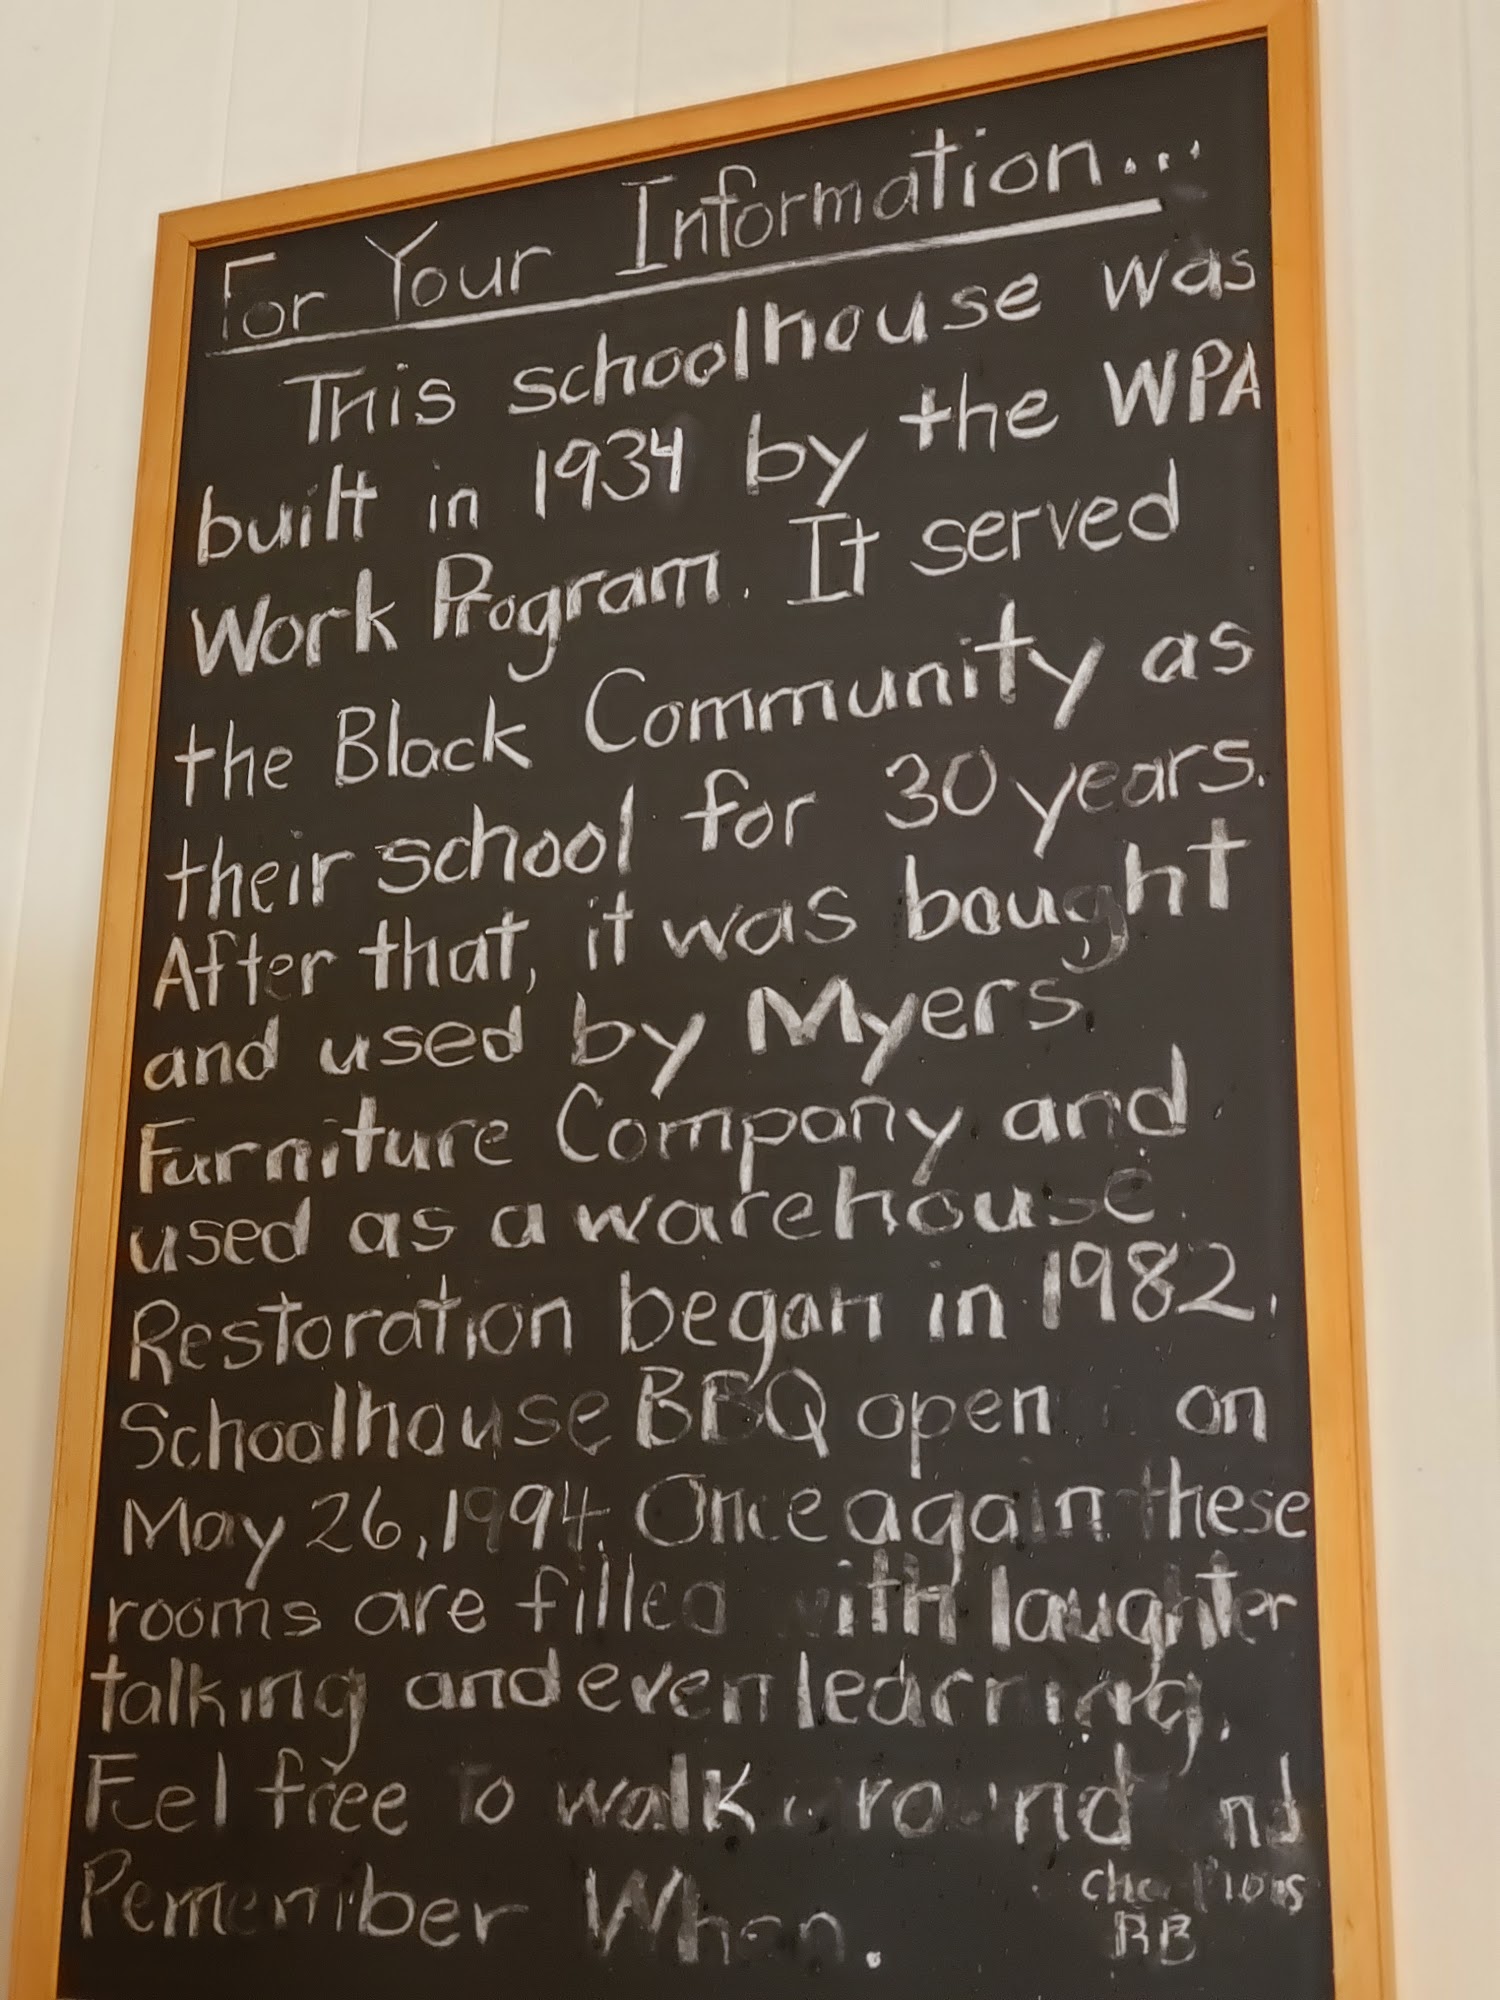 For Your Information...
This schoolhouse was
built in 1934 by the WPA
Work Program. It served
the Black Community as
their school for 30 years.
After that, it was bought
and used by Myers
Furniture Company and
used as a warehouse.
Restoration began in 1982.
Schoolhouse BBQ open on
May 26, 1994. Once again these
rooms are filled with laughter
talking and even learning.
Feel free to walk around and
Remember When.
RB